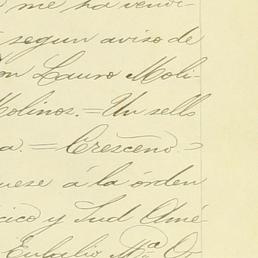 me ha vendi-
segun aviso de
on Lauro Moli-
Molinos.=Un sello
a.=Cresceno.=
uese á la órden
cico y Sud Amé-
Eulalio Mª Or